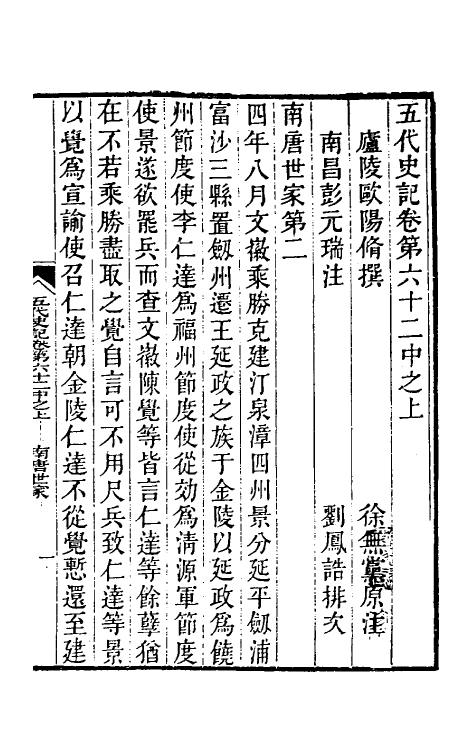 五代史記卷第六十二中之上
廬陵歐陽脩撰 徐無黨原注
南昌彭元瑞注 劉鳳誥排次
南唐世家第二
四年八月文徽乘勝克建汀泉漳四州景分延平劔浦
富沙三縣置劔州遷王延政之族于金陵以延政爲饒
州節度使李仁達爲福州節度使從効爲清源軍節度
使景遂欲罷兵而查文徽陳覺等皆言仁達等餘孽猶
在不若乘勝盡取之覺自言可不用尺兵致仁達等景
以覺爲宣諭使召仁達朝金陵仁達不從覺慙還至建
五代史記卷第六十二中之上 南唐世家 一